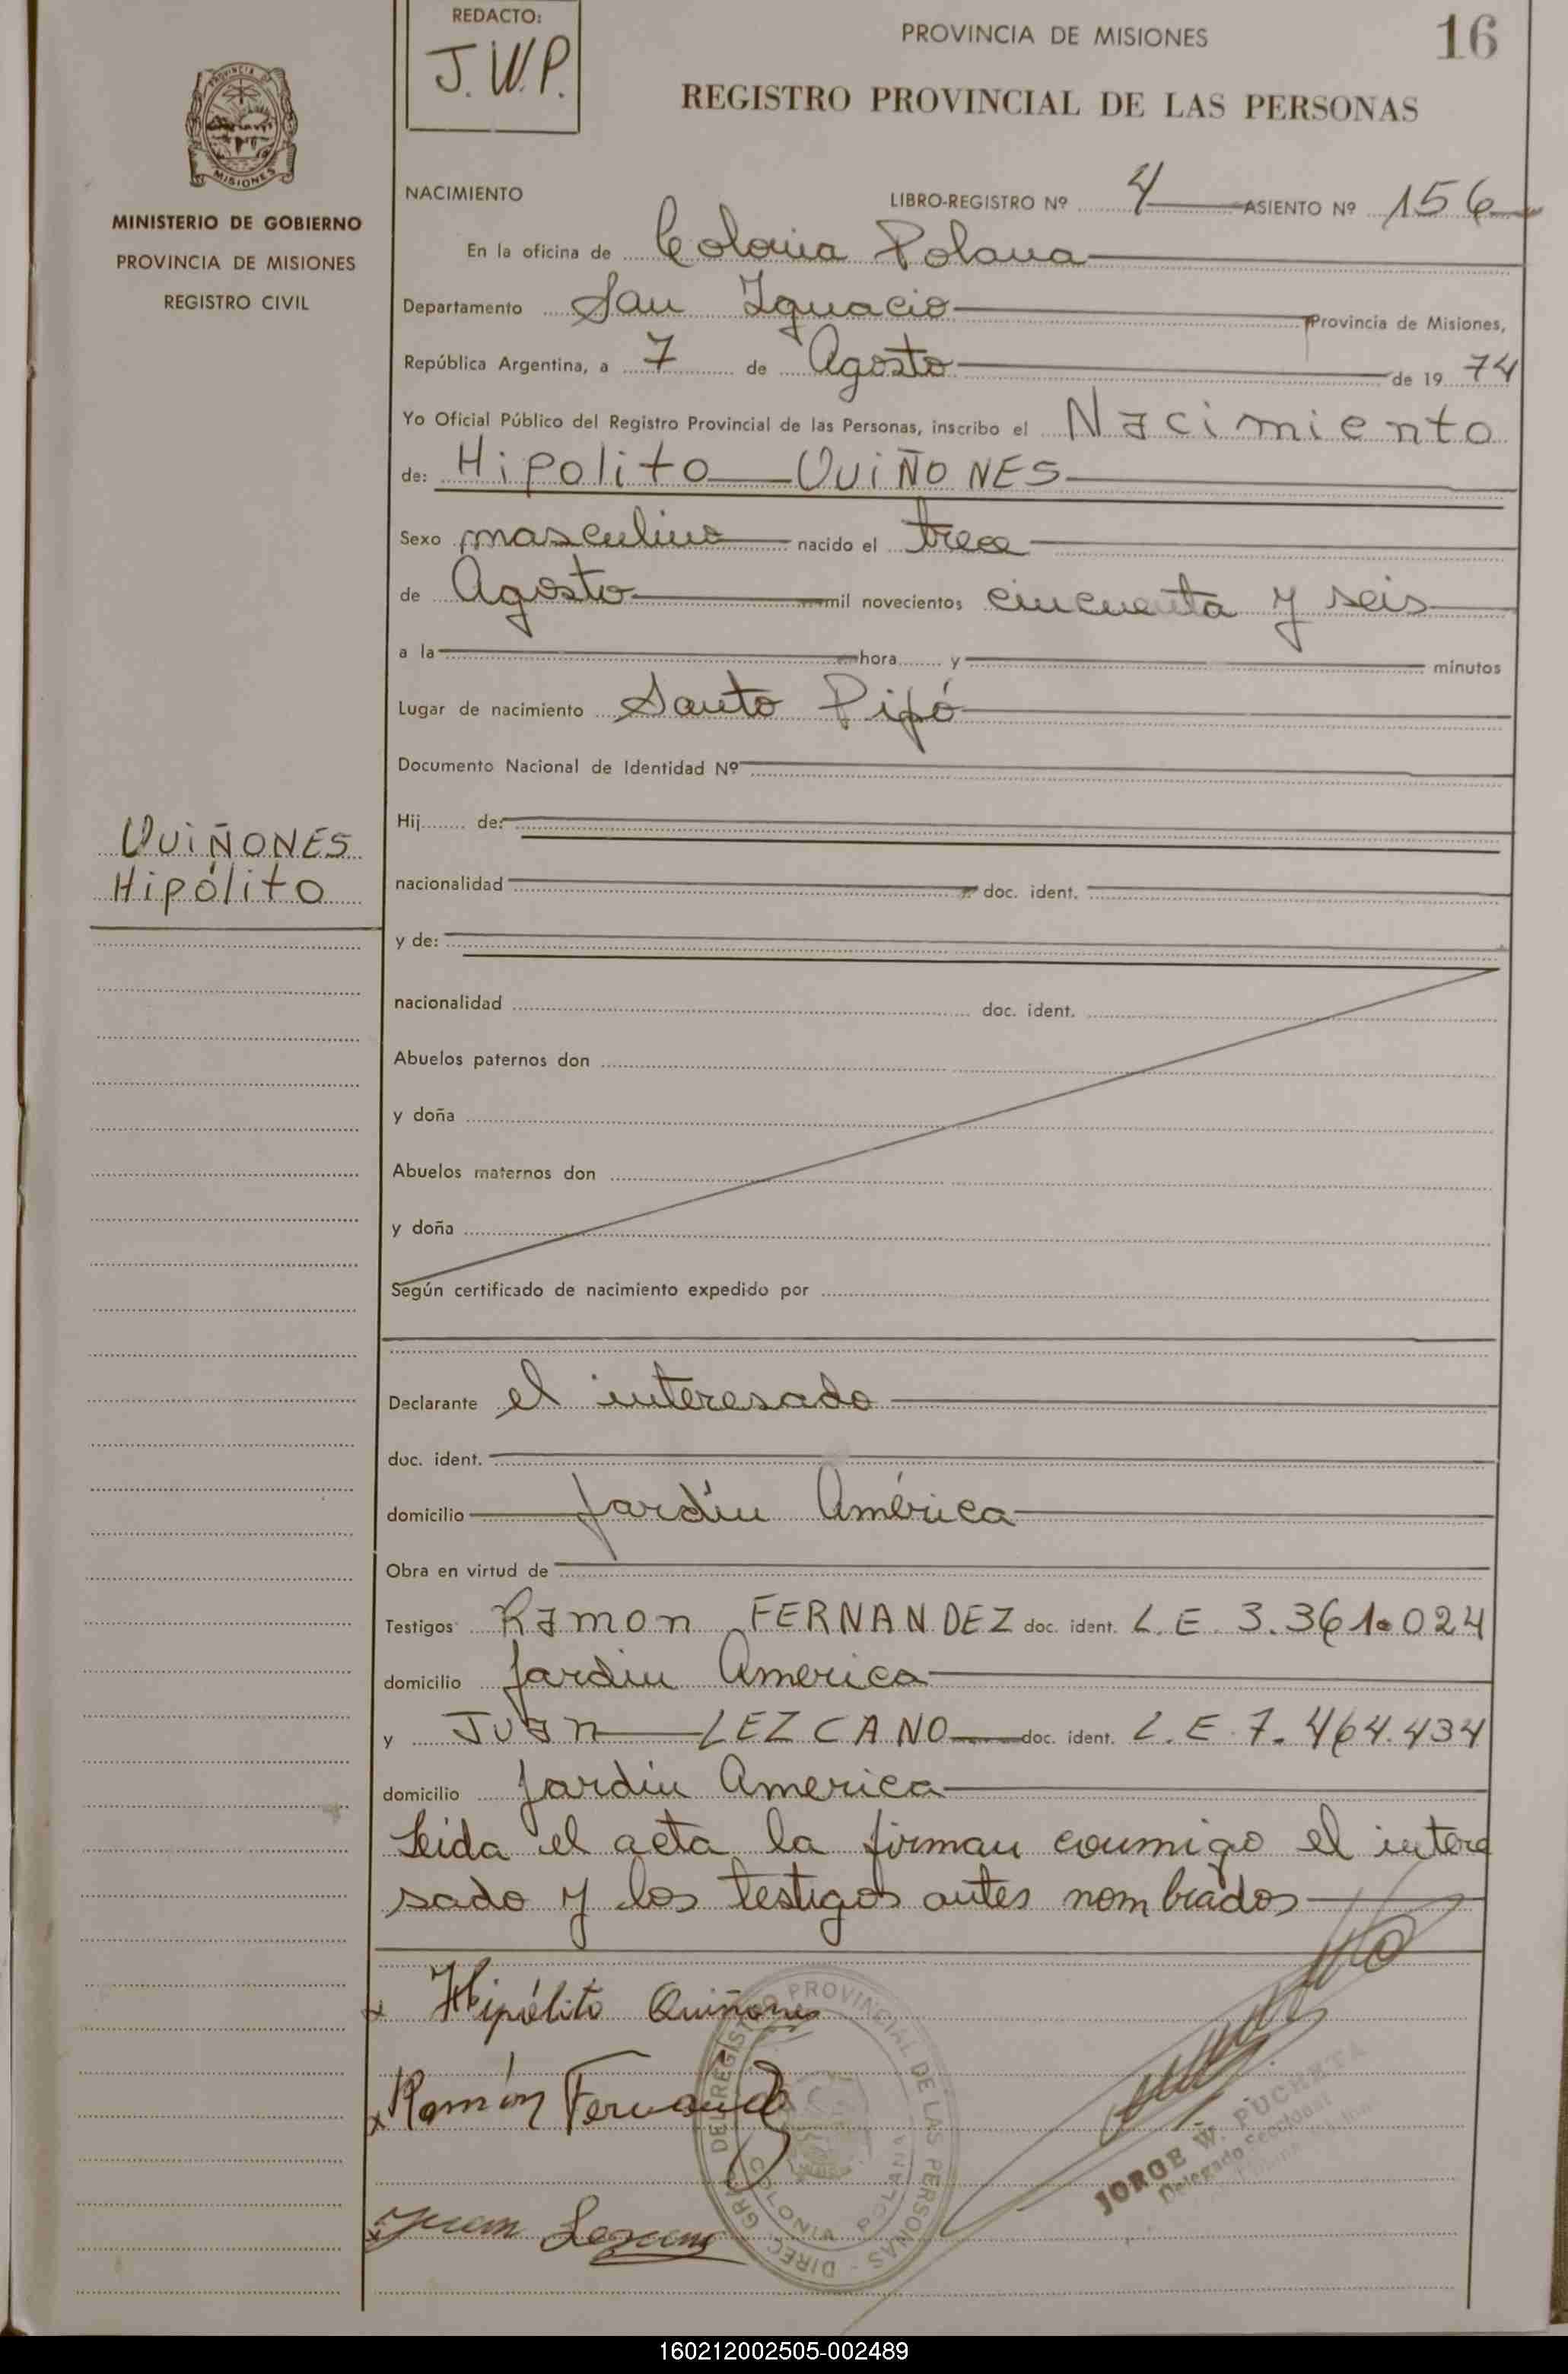 REDACTO:
J.W.P.
PROVINCIA DE MISIONES
16
REGISTRO PROVINCIAL DE LAS PERSONAS
PROVINCIA DE
MISIONES
MINISTERIO DE GOBIERNO
PROVINCIA DE MISIONES
REGISTRO CIVIL
NACIMIENTO LIBRO-REGISTRO Nº 4 ASIENTO Nº 156
En la oficina de Colonia Polana
Departamento San Ignacio Provincia de Misiones,
República Argentina, a 7 de Agosto de 19 74
Yo Oficial Público del Registro Provincial de las Personas, inscribo el Nacimiento
de: Hipolito QUIÑONES
Sexo masculino nacido el trece
de Agosto mil novecientos cincuenta y seis
a la hora y minutos
Lugar de nacimiento Santo Pipó
Documento Nacional de Identidad Nº
QUIÑONES
Hipólito
Hij de:
nacionalidad doc. ident.
y de:
nacionalidad doc. ident.
Abuelos paternos don
y doña
Abuelos maternos don
y doña
Según certificado de nacimiento expedido por
Declarante el interesado
doc. ident.
domicilio Jardín América
Obra en virtud de
Testigos Ramon FERNANDEZ doc. ident. L.E. 3.361.024
domicilio Jardin America
y Juan LEZCANO doc. ident. L.E. 7.464.434
domicilio Jardin America
Leida el acta la firman conmigo el intere
sado y los testigos antes nombrados
x Hipólito Quiñones
x Ramón Fernandez
x Juan Lezcano
DIREC. GRAL. DEL REGISTRO PROVINCIAL DE LAS PERSONAS
COLONIA POLANA
JORGE W. PUCHETA
Delegado Seccional
160212002505-002489